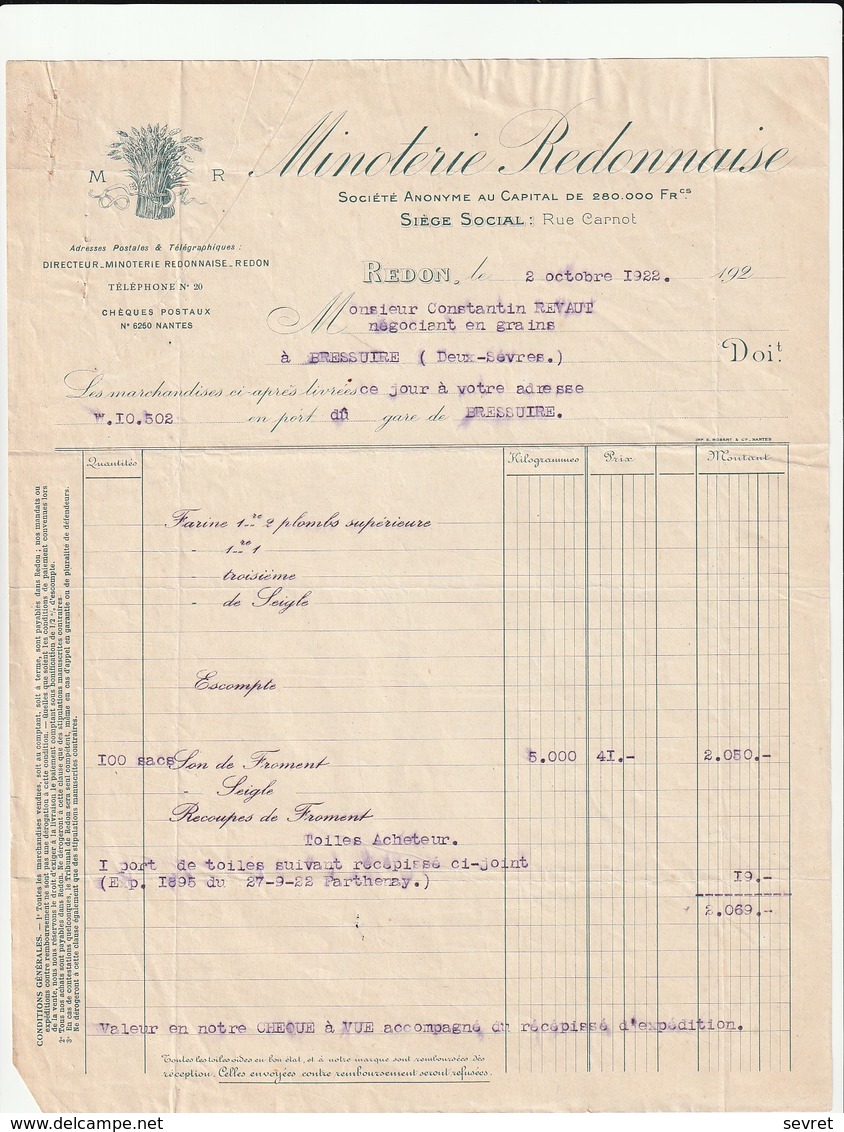 Minoterie Redonnaise
M R
Société Anonyme au Capital de 280.000 Frcs.
Siège Social: Rue Carnot
Adresses Postales & Télégraphiques:
DIRECTEUR_MINOTERIE REDONNAISE_REDON
TÉLÉPHONE N° 20
CHÈQUES POSTAUX
N° 6250 NANTES
REDON, le 2 octobre I922. 192
Monsieur Constantin REVAUT
négociant en grains
à BRESSUIRE ( Deux-Sèvres.) Doit.
Les marchandises ci-après livrées ce jour à votre adresse
W.I0.502 en port dû gare de BRESSUIRE.
IMP. E. ROBERT & Cie. NANTES
Quantités Kilogrammes Prix Montant
Farine 1re 2 plombs supérieure
- 1re 1
- troisième
- de Seigle
Escompte
I00 sacs Son de Froment 5.000 4I.- 2.050.-
- Seigle
Recoupes de Froment
Toiles Acheteur.
I port de toiles suivant récépissé ci-joint
(Exp. I895 du 27-9-22 Parthenay.) I9.-
2.069.-
Valeur en notre CHEQUE à VUE accompagné du récépissé d'expédition.
Toutes les toiles vides en bon état, et à notre marque sont remboursées dès
réception. Celles envoyées contre remboursement seront refusées.
CONDITIONS GÉNÉRALES. — 1° Toutes les marchandises vendues, soit au comptant, soit à terme, sont payables dans Redon ; nos mandats ou
expéditions contre remboursement ne sont pas une dérogation à cette condition. — Quelles que soient les conditions de paiement convenues lors
de la vente, nous nous réservons le droit d'exiger à la livraison le paiement comptant sous bonification de 1/2 %, d'escompte.
2° Tous nos achats sont payables dans Redon. Ne dérogeront à cette clause que des stipulations manuscrites contraires.
3° En cas de contestations quelconques, le Tribunal de Redon sera seul compétent, même en cas d'appel en garantie ou de pluralité de défendeurs.
Se dérogeront à cette clause également que des stipulations manuscrites contraires.
sevret